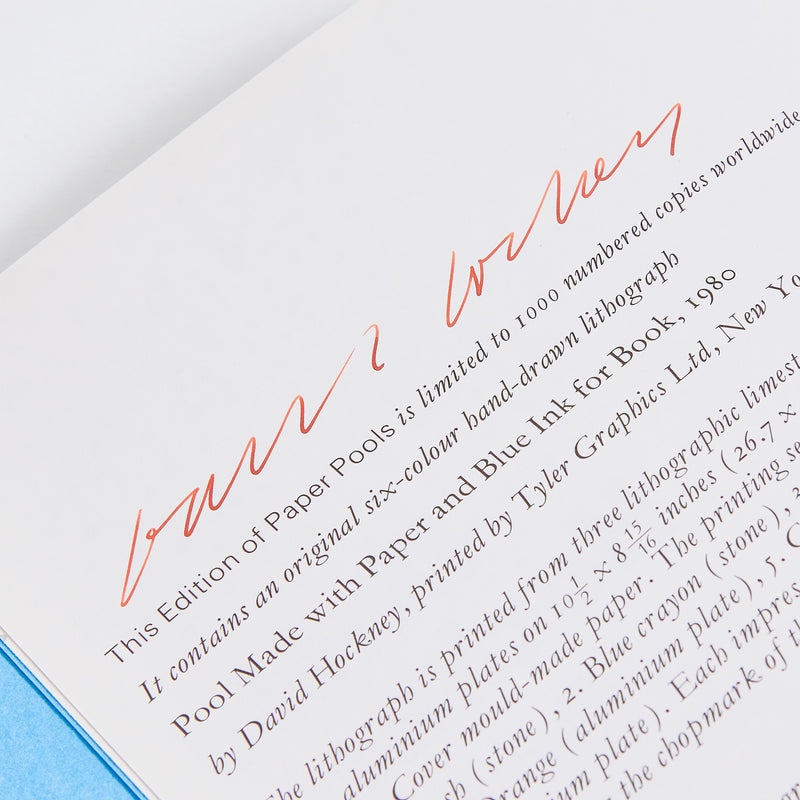 This Edition of Paper Pools is limited to 1000 numbered copies worldwide
It contains an original six-colour hand-drawn lithograph
Pool Made with Paper and Blue Ink for Book, 1980
by David Hockney, printed by Tyler Graphics Ltd, New Yo
he lithograph is printed from three lithographic limest
aluminium plates on 10 1/2 × 8 15/16 inches (26.7 ×
Cover mould-made paper. The printing se
sh (stone), 2. Blue crayon (stone),
range (aluminium plate), 5. C
ium plate). Each impres
the chopmark of th